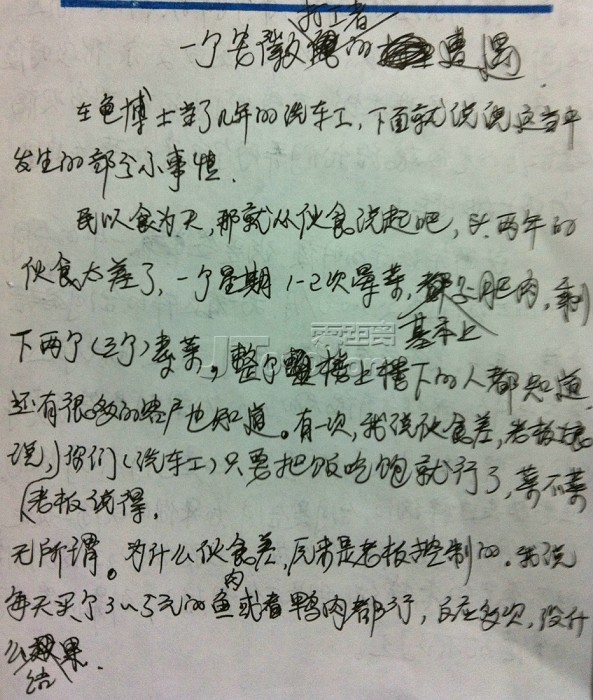 一个安徽打工者的遭遇
在龟博士当了几年的洗车工,下面就说说这当中
发生的部分小事情.
民以食为天,那就从伙食说起吧,头两年的
伙食太差了,一个星期1-2次荤菜,基本上肥肉,剩
下两个(三个)素菜。整个楼上楼下的人都知道
还有很多的客户也知道。有一次,我说伙食差,老板
说,你们(洗车工)只要把饭吃饱就行了,菜不菜
老板说得,
无所谓。为什么伙食差,原来是老板控制的。我说
每天买个3~5元的鱼肉或者鸭肉都行,反应多次,没什
么结果.
零距离